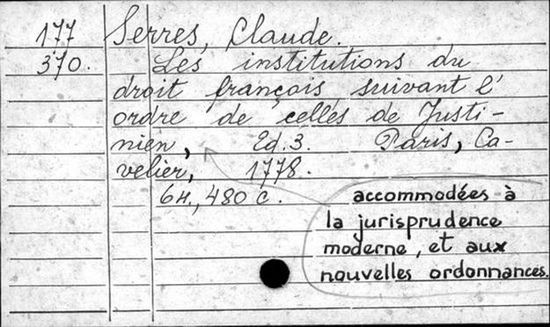 177 Serres, Claude.
370. Les institutions du
droit françois suivant l'
ordre de celles de Justi-
nien, Ed. 3. Paris, Ca-
velier, 1778.
64, 480 c.
accommodées à
la jurisprudence
moderne, et aux
nouvelles ordonnances.